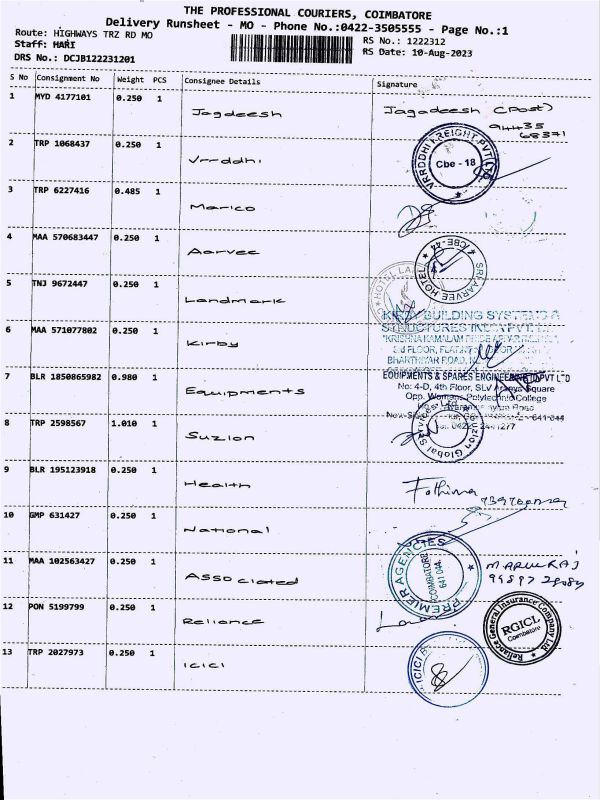 THE PROFESSIONAL COURIERS, COIMBATORE
Delivery Runsheet - MO - Phone No.:0422-3505555 - Page No.:1
Route: HIGHWAYS TRZ RD MO
RS No.: 1222312
Staff: HARI
RS Date: 10-Aug-2023
DRS No.: DCJB122231201
S No Consignment No Weight PCS Consignee Details Signature
1 MYD 4177101 0.250 1 Jagdeesh Jagadeesh (Post)
94435
68371
2 TRP 1068437 0.250 1 Vrrddhi
VRRDDHI FREIGHT PVT LTD
Cbe - 18
3 TRP 6227416 0.485 1 Marico
4 MAA 570683447 0.250 1 Aarvee
SRI AARVEE HOTEL CBE-44
5 TNJ 9672447 0.250 1 Landmark
HOTEL LA
6 MAA 571077802 0.250 1 Kirby
KIRBY BUILDING SYSTEMS &
STRUCTURES INDIA PVT.
BHARTHIYAR ROAD,
7 BLR 1850865982 0.980 1 Equipments
EQUIPMENTS & SPARES ENGINEERING PVT LTD
No: 4-D, 4th Floor, SLV Square
Opp. Womens Polytechnic College
641 044
8 TRP 2598567 1.010 1 Suzlon
Suzlon Global Services Ltd
9 BLR 195123918 0.250 1 Health Fathima
10 GMP 631427 0.250 1 National
11 MAA 102563427 0.250 1 Associated
PREMIER AGENCIES
COIMBATORE
641 044.
12 PON 5199799 0.250 1 Reliance
Reliance General Insurance Company Ltd.
RGICL
Coimbatore
13 TRP 2027973 0.250 1 icici
ICICI